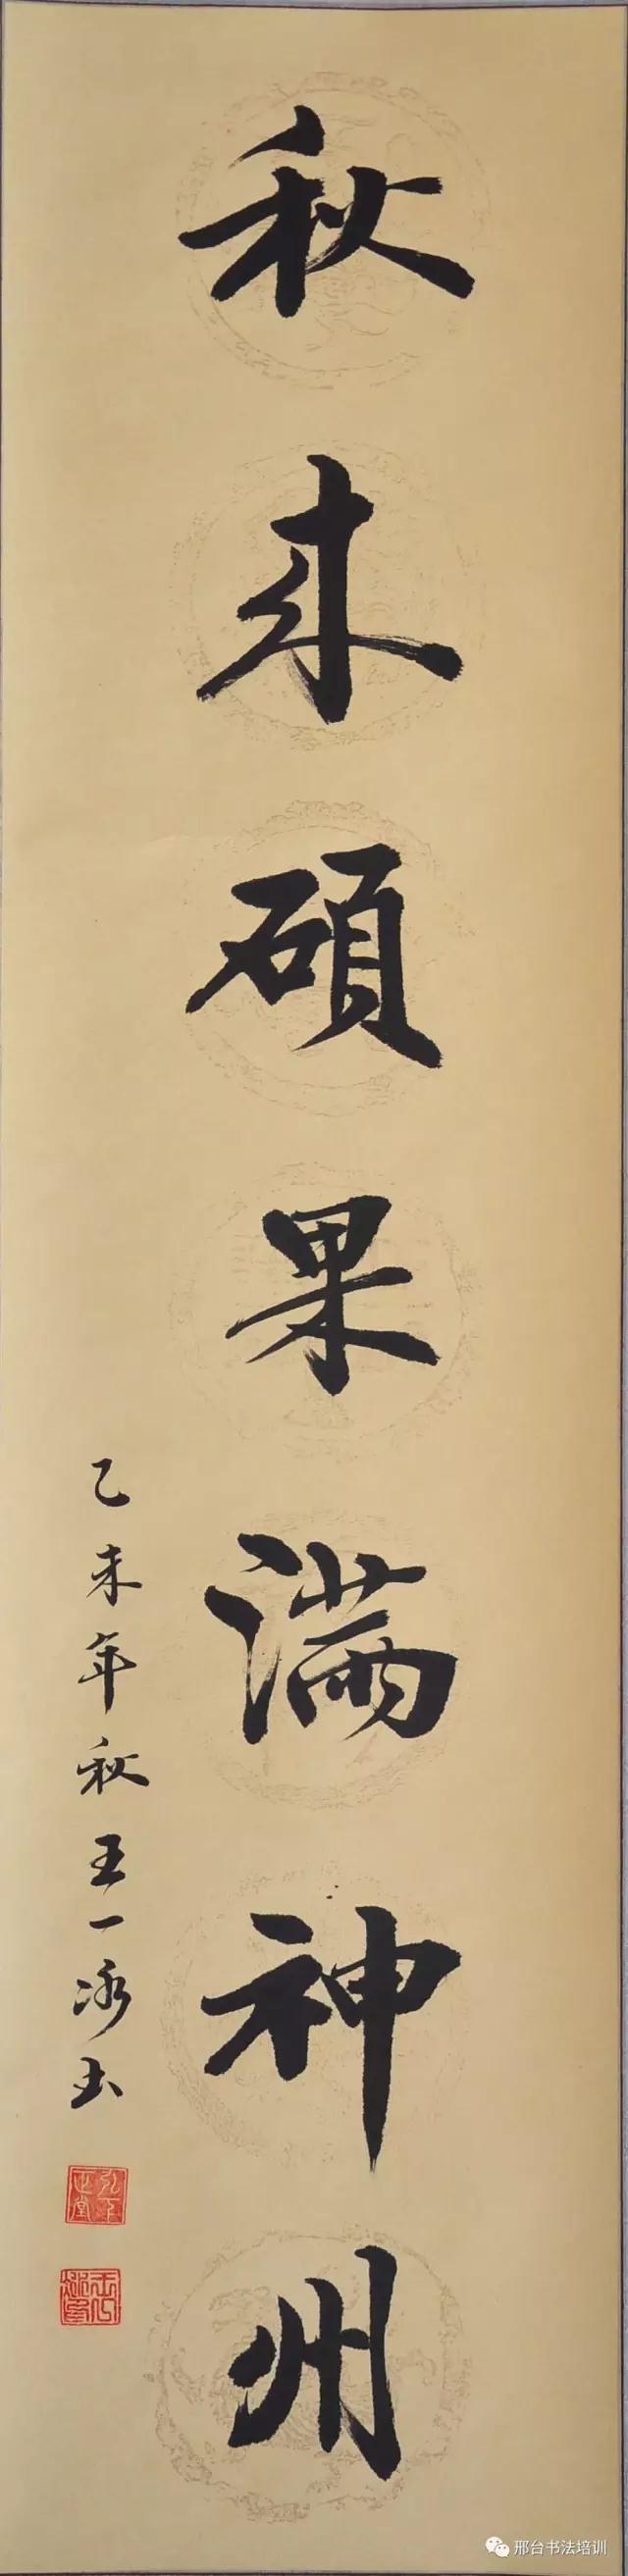 秋来碩果满神州
乙未年秋王一冰书
邢台书法培训